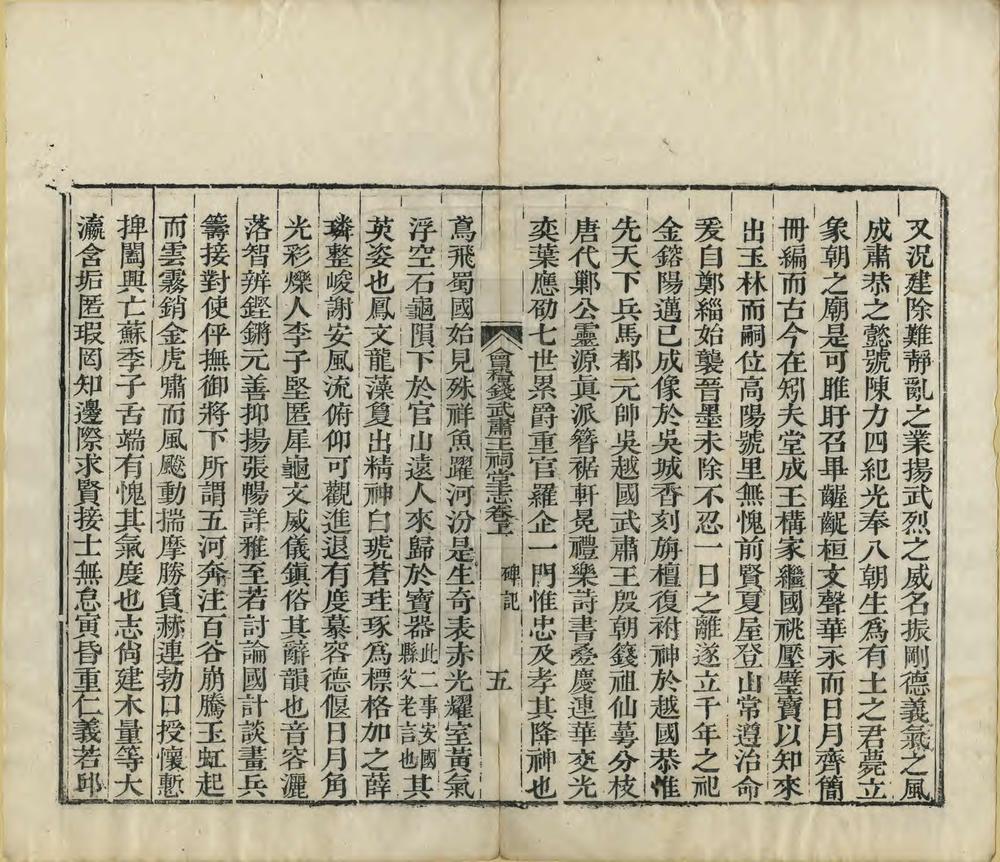 又況建除難靜亂之業揚武烈之威名振剛德義氣之風
成肅恭之懿號陳力四紀光奉八朝生爲有土之君薨立
象朝之廟是可睢盱召畢齷齪桓文聲華永而日月齊簡
冊編而古今在矧夫堂成王構家繼國祧壓璧寶以知來
出玉林而嗣位高陽號里無愧前賢夏屋登山常遵治命
爰自鄭緇始襲晉墨未除不忍一日之離遂立千年之祀
金鎔陽邁已成像於吳城香刻旃檀復祔神於越國恭惟
先天下兵馬都元帥吳越國武肅王殷朝籛祖仙萼分枝
唐代鄴公靈源眞派簪裾軒冕禮樂詩書疊慶連華奕光
奕葉應劭七世累爵重官羅企一門惟忠及孝其降神也
會稽錢武肅王祠堂志卷 碑記 五
鳶飛蜀國始見殊祥魚躍河汾是生奇表赤光耀室黃氣
浮空石龜隕下於官山遠人來歸於寶器此二事安國縣父老言也其
英姿也鳳文龍藻敻出精神白琥蒼珪琢爲標格加之薛
璘整峻謝安風流俯仰可觀進退有度慕容德偃日月角
光彩爍人李子堅匿犀龜文威儀鎮俗其辭韻也音容灑
落智辨鏗鏘元善抑揚張暢詳雅至若討論國計談畫兵
籌接對使伻撫御將下所謂五河奔注百谷崩騰玉虹起
而雲霧銷金虎嘯而風飈動揣摩勝負赫連勃口授懷慙
捭闔興亡蘇季子舌端有愧其氣度也志尚建木量等大
瀛含垢匿瑕罔知邊際求賢接士無怠寅昏重仁義若邱